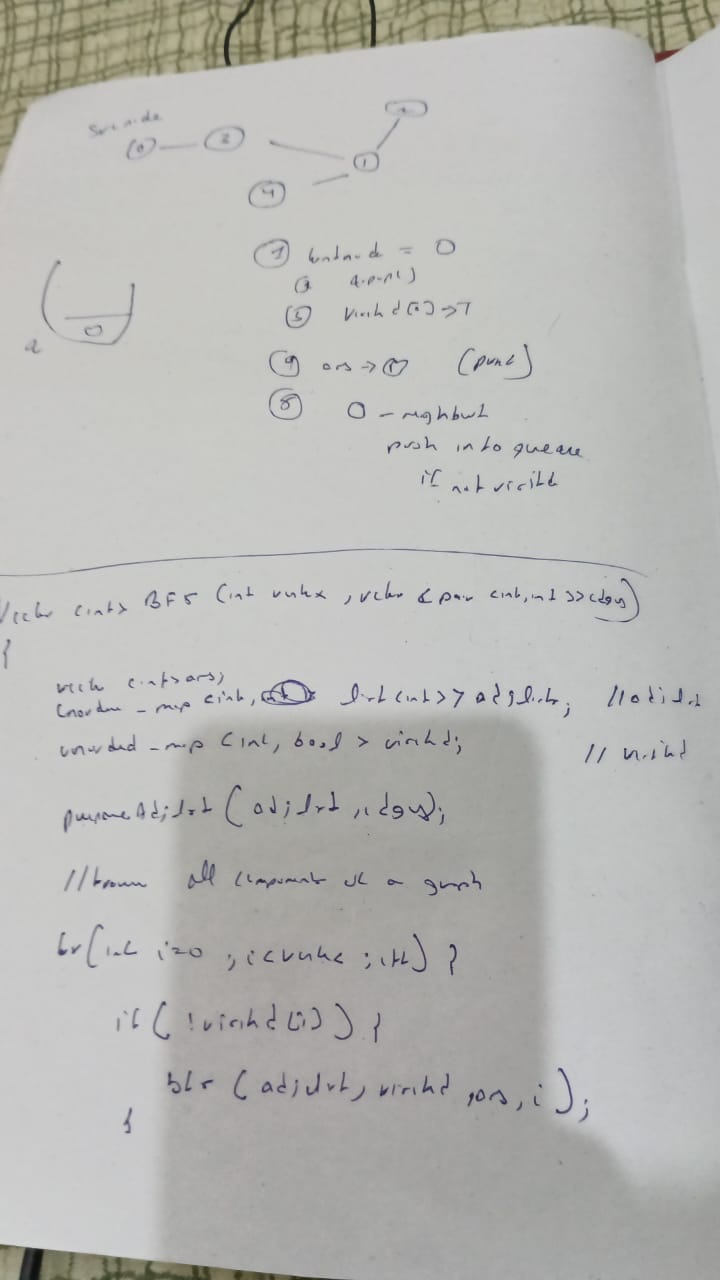 0 2
1
4
= 0
q.push()
visited[0] -> T
ans -> 0 (print)
0 - neighbour
push into queue
if not visited
0
q
vector <int> BFS (int vertex, vector <pair <int, int >> edges)
{
vector <int> ans;
unordered_map <int, list <int>> adjlist; // adjlist
unordered_map <int, bool> visited; // visited
prepareAdjlist (adjlist, edges);
// traverse all components of a graph
for (int i=0 ; i<vertex ; i++) {
if ( !visited [i] ) {
bfs (adjlist, visited, ans, i );
}